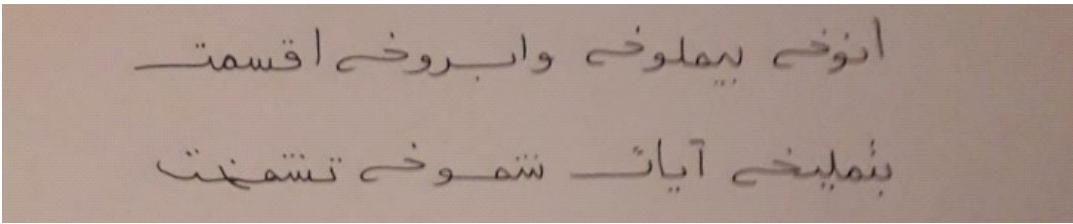 انوخے بيملوخے وابروخے اقسمت
بثمليخے آيات شموخے تشمخت